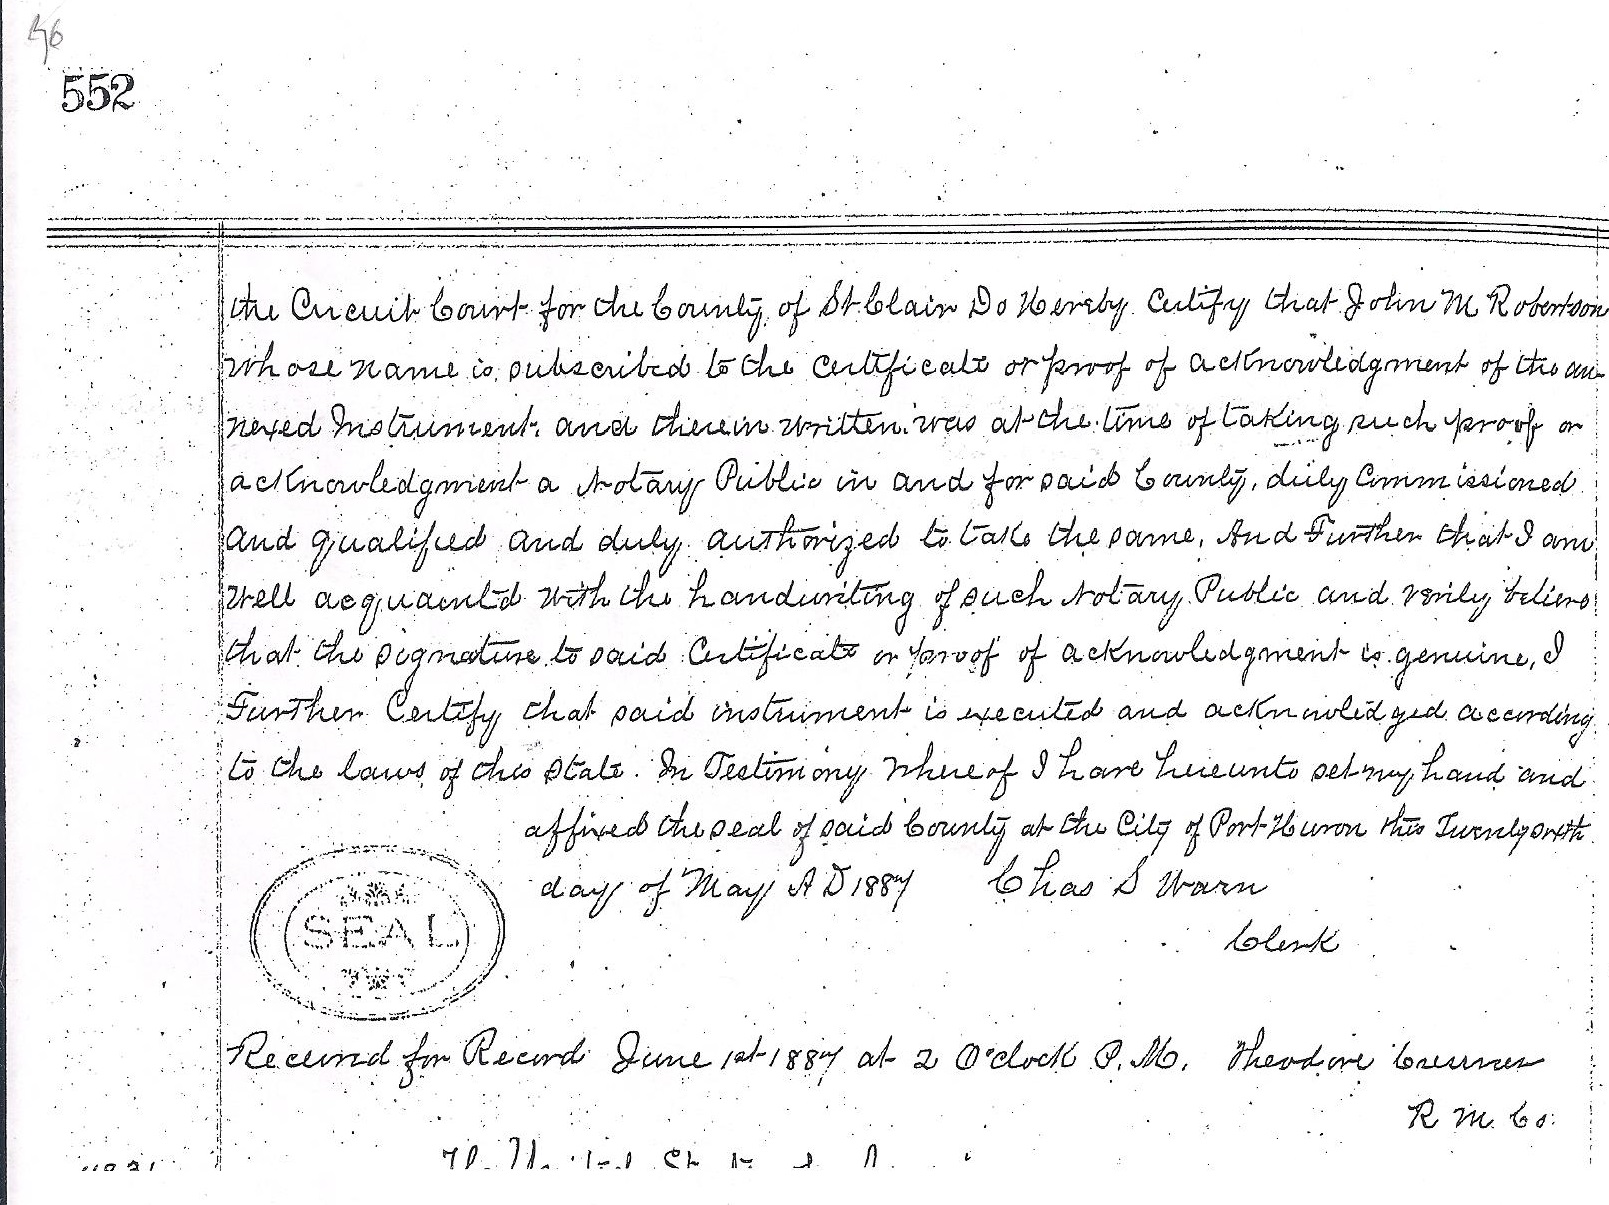 552
the Circuit Court for the County of St Clair Do Hereby Certify that John M Robertson
whose name is subscribed to the Certificate or proof of acknowledgment of the an-
nexed Instrument. and therein written. was at the time of taking such proof or
acknowledgment a Notary Public in and for said County, duly Commissioned
and qualified and duly authorized to take the same, And Further that I am
well acquainted with the handwriting of such Notary Public and verily believe
that the signature to said Certificate or proof of acknowledgment is genuine, I
Further Certify that said instrument is executed and acknowledged according
to the laws of this State. In Testimony Whereof I have hereunto set my hand and
affixed the seal of said County at the City of Port Huron this Twenty sixth
day of May A D 1887 Chas S Warn
SEAL
Clerk
Received for Record June 1st 1887 at 2 O'clock P. M. Theodore
R M. Co.